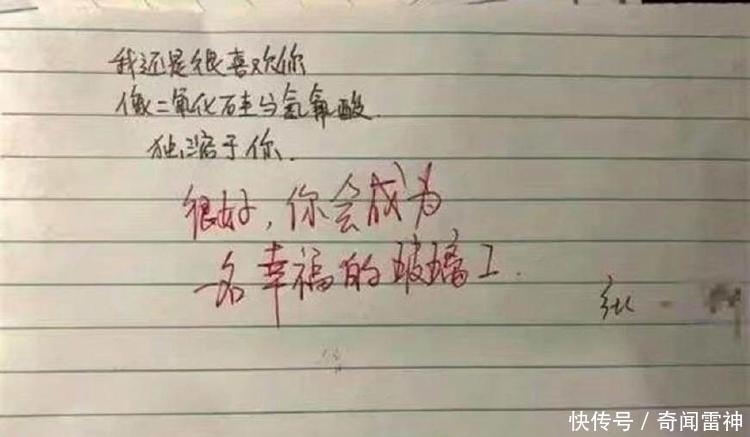 我还是很喜欢你
像二氧化硅与氢氟酸.
独溶于你.
很好,你会成为
一名幸福的玻璃工.
快传号/奇闻雷神